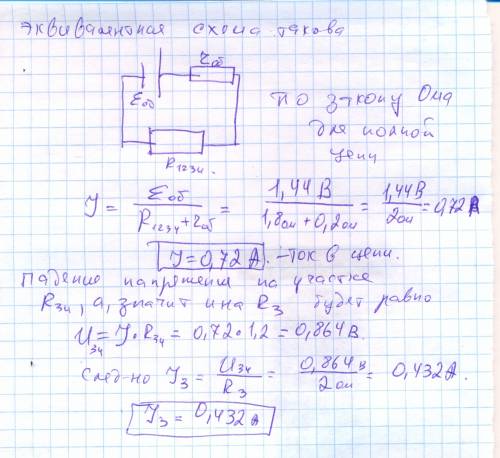 эквивалентная схема такова
rоб
Eоб
R1234.
по закону Ома
для полной
цепи
J = Eоб / (R1234 + rоб) = 1,44 В / (1,8 ом + 0,2 ом) = 1,44 В / 2 ом = 0,72 А
J = 0,72 А. – ток в цепи.
Падение напряжения на участке
R34, а, значит и на R3 будет равно
U34 = J · R34 = 0,72 · 1,2 = 0,864 В.
След-но J3 = U34 / R3 = 0,864 в / 2 ом = 0,432 А.
J3 = 0,432 А